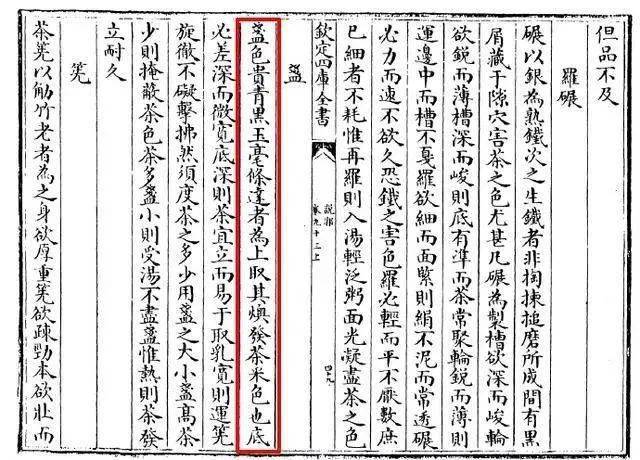 但品不及
羅碾
碾以銀為熟鐵次之生鐵者非掏揀搥磨所成間有黑
屑藏于隙穴害茶之色尤甚凡碾為製槽欲深而峻輪
欲鋭而薄槽深而峻則底有準而茶常聚輪鋭而薄則
運邊中而槽不戛羅欲細而面緊則絹不泥而常透碾
必力而速不欲久恐鐵之害色羅必輕而平不厭數庶
已細者不耗惟再羅則入湯輕泛粥面光凝盡茶之色
欽定四庫全書
說郛
卷九十三上
四九
盞
盞色貴青黑玉毫條達者為上取其燠發茶米色也底
必差深而微寬底深則茶宜立而易于取乳寬則運筅
旋徹不礙擊拂然須度茶之多少用盞之大小盞髙茶
少則掩蔽茶色茶多盞小則受湯不盡盞惟熱則茶發
立耐久
筅
茶筅以觔竹老者為之身欲厚重筅欲疎勁本欲壯而